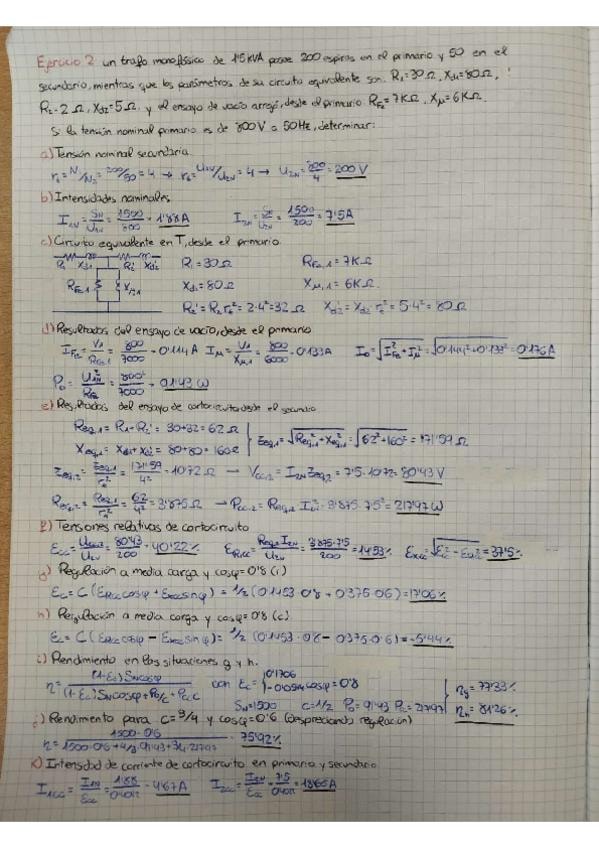 Ejercicio 2 un trafo monofásico de 1'5KVA posee 200 espiras en el primario y 50 en el
secundario, mientras que los parámetros de su circuito equivalente son: R₁=30Ω, Xd1=80Ω,
R₂=2Ω, Xd2=5Ω y el ensayo de vacío arrojó, desde el primario RFe=7KΩ, Xμ=6KΩ.
Si la tensión nominal primario es de 800V a 50Hz, determinar:
a) Tensión nominal secundaria
rt = N1/N2 = 200/50 = 4 → rt = U1N/U2N = 4 → U2N = 800/4 = 200V
b) Intensidades nominales
I1N = SN/U1N = 1500/800 = 1'88A I2N = SN/U2N = 1500/200 = 7'5A
c) Circuito equivalente en T, desde el primario
R1 Xd1 R2' Xd2' R1=30Ω RFe,1=7KΩ
RFe,1 Xμ,1 Xd1=80Ω Xμ,1=6KΩ
R2'=R2·rt²=2·4²=32Ω Xd2'=Xd2·rt²=5·4²=80Ω
d) Resultados del ensayo de vacío, desde el primario
IFe = V1/RFe,1 = 800/7000 = 0'114A Iμ = V1/Xμ,1 = 800/6000 = 0'133A I0 = √(IFe²+Iμ²) = √(0'114²+0'133²) = 0'176A
P0 = U1N²/RFe = 800²/7000 = 91'43W
e) Resultados del ensayo de cortocircuito desde el secundario
Req,1 = R1+R2' = 30+32 = 62Ω
Xeq,1 = Xd1+Xd2' = 80+80 = 160Ω } Zeq,1 = √(Req,1²+Xeq,1²) = √(62²+160²) = 171'59Ω
Zeq,2 = Zeq,1/rt² = 171'59/4² = 10'72Ω → Vcc,2 = I2N·Zeq,2 = 7'5·10'72 = 80'43V
Req,2 = Req,1/rt² = 62/4² = 3'875Ω → Pcc,2 = Req,2·I2N² = 3'875·7'5² = 217'97W
f) Tensiones relativas de cortocircuito
εcc = Ucc,2/U2N = 80'43/200 = 40'22% εRcc = Req,2·I2N/U2N = 3'875·7'5/200 = 14'53% εXcc = √(εcc²-εRcc²) = 37'5%
g) Regulación a media carga y cosφ=0'8 (i)
εc = C(εRcc cosφ + εXcc senφ) = 1/2 (0'1453·0'8 + 0'375·0'6) = 17'06%
h) Regulación a media carga y cosφ=0'8 (c)
εc = C(εRcc cosφ - εXcc senφ) = 1/2 (0'1453·0'8 - 0'375·0'6) = -5'44%
i) Rendimiento en las situaciones g y h.
η = (1-εc)SN·C·cosφ / (1-εc)SN·C·cosφ+P0+Pcc·C² con εc = { 0'1706 cosφ=0'8
SN=1500 C=1/2 P0=91'43 Pcc=217'97 } ηg = 77'33% ηh = 81'26%
j) Rendimiento para y cosφ=0'6 (despreciando regulación)
= 75'92%
k) Intensidad de corriente de cortocircuito en primario y secundario
I1cc = I1N/εcc = 1'88/0'4022 = 4'67A I2cc = I2N/εcc = 7'5/0'4022 = 18'65A